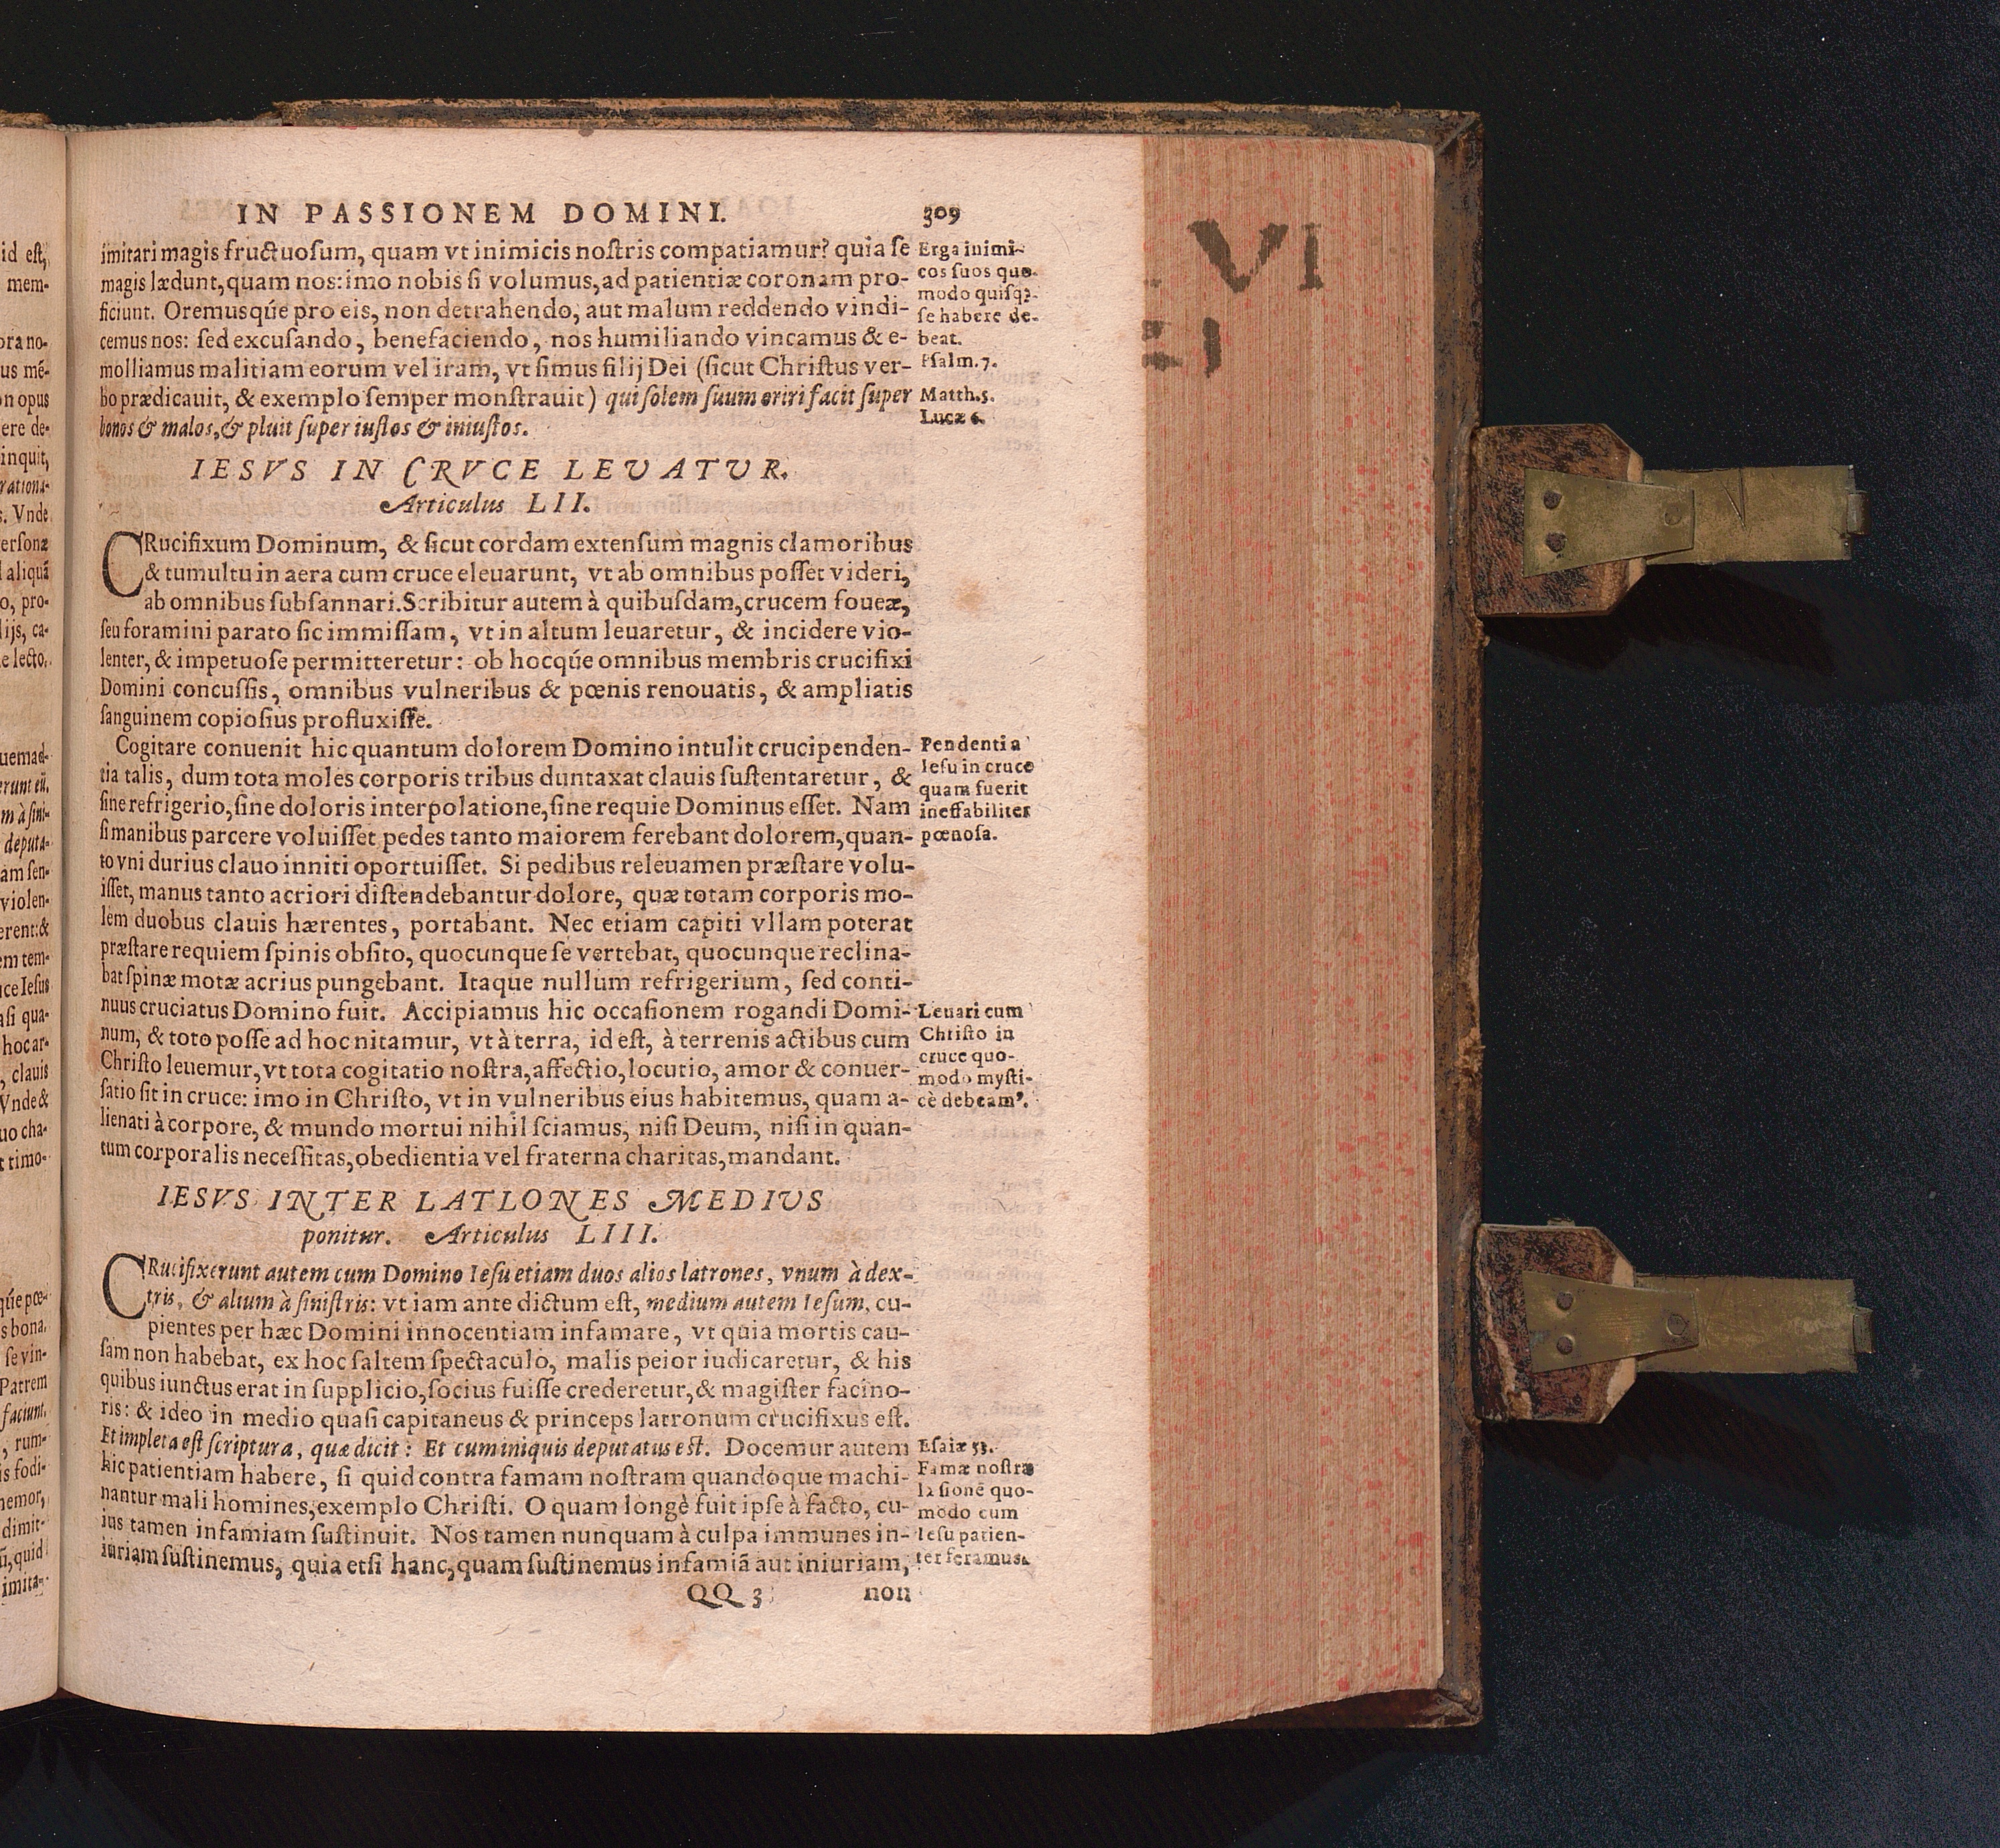 IN PASSIONEM DOMINI. 309
imitari magis fructuoſum, quam vt inimicis noſtris compatiamur? quia ſe
magis lædunt, quam nos: imo nobis ſi volumus, ad patientiæ coronam pro-
ficiunt. Oremusq́ue pro eis, non detrahendo, aut malum reddendo vindi-
cemus nos: ſed excuſando, benefaciendo, nos humiliando vincamus & e-
molliamus malitiam eorum vel iram, vt ſimus filij Dei (ſicut Chriſtus ver-
bo prædicauit, & exemplo ſemper monſtrauit) qui ſolem ſuum oriri facit ſuper
bonos & malos, & pluit ſuper iuſtos & iniuſtos.
Erga inimi-
cos ſuos quo-
modo quiſqꝫ
ſe habere de-
beat.
Pſalm. 7.
Matth. 5.
Lucæ 6.
IESVS IN CRVCE LEVATVR.
Articulus LII.
CRucifixum Dominum, & ſicut cordam extenſum magnis clamoribus
& tumultu in aera cum cruce eleuarunt, vt ab omnibus poſſet videri,
ab omnibus ſubſannari. Scribitur autem à quibuſdam, crucem foueæ,
ſeu foramini parato ſic immiſſam, vt in altum leuaretur, & incidere vio-
lenter, & impetuoſe permitteretur: ob hocq́ue omnibus membris crucifixi
Domini concuſſis, omnibus vulneribus & pœnis renouatis, & ampliatis
ſanguinem copioſius profluxiſſe.
Cogitare conuenit hic quantum dolorem Domino intulit crucipenden-
tia talis, dum tota moles corporis tribus duntaxat clauis ſuſtentaretur, &
ſine refrigerio, ſine doloris interpolatione, ſine requie Dominus eſſet. Nam
ſi manibus parcere voluiſſet pedes tanto maiorem ferebant dolorem, quan-
to vni durius clauo inniti oportuiſſet. Si pedibus releuamen præſtare volu-
iſſet, manus tanto acriori diſtendebantur dolore, quæ totam corporis mo-
lem duobus clauis hærentes, portabant. Nec etiam capiti vllam poterat
præſtare requiem ſpinis obſito, quocunque ſe vertebat, quocunque reclina-
bat ſpinæ motæ acrius pungebant. Itaque nullum refrigerium, ſed conti-
nuus cruciatus Domino fuit. Accipiamus hic occaſionem rogandi Domi-
num, & toto poſſe ad hoc nitamur, vt à terra, id eſt, à terrenis actibus cum
Chriſto leuemur, vt tota cogitatio noſtra, affectio, locutio, amor & conuer-
ſatio ſit in cruce: imo in Chriſto, vt in vulneribus eius habitemus, quam a-
lienati à corpore, & mundo mortui nihil ſciamus, niſi Deum, niſi in quan-
tum corporalis neceſſitas, obedientia vel fraterna charitas, mandant.
Pendentia
Ieſu in cruce
quam fuerit
ineffabiliter
pœnoſa.
Leuari cum
Chriſto in
cruce quo-
modo myſti-
cè debeam⁹.
IESVS INTER LATLONES MEDIVS
ponitur. Articulus LIII.
CRucifixerunt autem cum Domino Ieſu etiam duos alios latrones, vnum à dex-
tris, & alium à ſiniſtris: vt iam ante dictum eſt, medium autem Ieſum, cu-
pientes per hæc Domini innocentiam infamare, vt quia mortis cau-
ſam non habebat, ex hoc ſaltem ſpectaculo, malis peior iudicaretur, & his
quibus iunctus erat in ſupplicio, ſocius fuiſſe crederetur, & magiſter facino-
ris: & ideo in medio quaſi capitaneus & princeps latronum crucifixus eſt.
Et impleta eſt ſcriptura, quæ dicit: Et cum iniquis deputatus eſt. Docemur autem
hic patientiam habere, ſi quid contra famam noſtram quandoque machi-
nantur mali homines, exemplo Chriſti. O quam longè fuit ipſe à facto, cu-
ius tamen infamiam ſuſtinuit. Nos tamen nunquam à culpa immunes in-
iuriam ſuſtinemus, quia etſi hanc, quam ſuſtinemus infamiã aut iniuriam,
Eſaiæ 53.
Famæ noſtræ
læſionē quo-
modo cum
Ieſu patien-
ter feramus.
QQ 3 non
VI